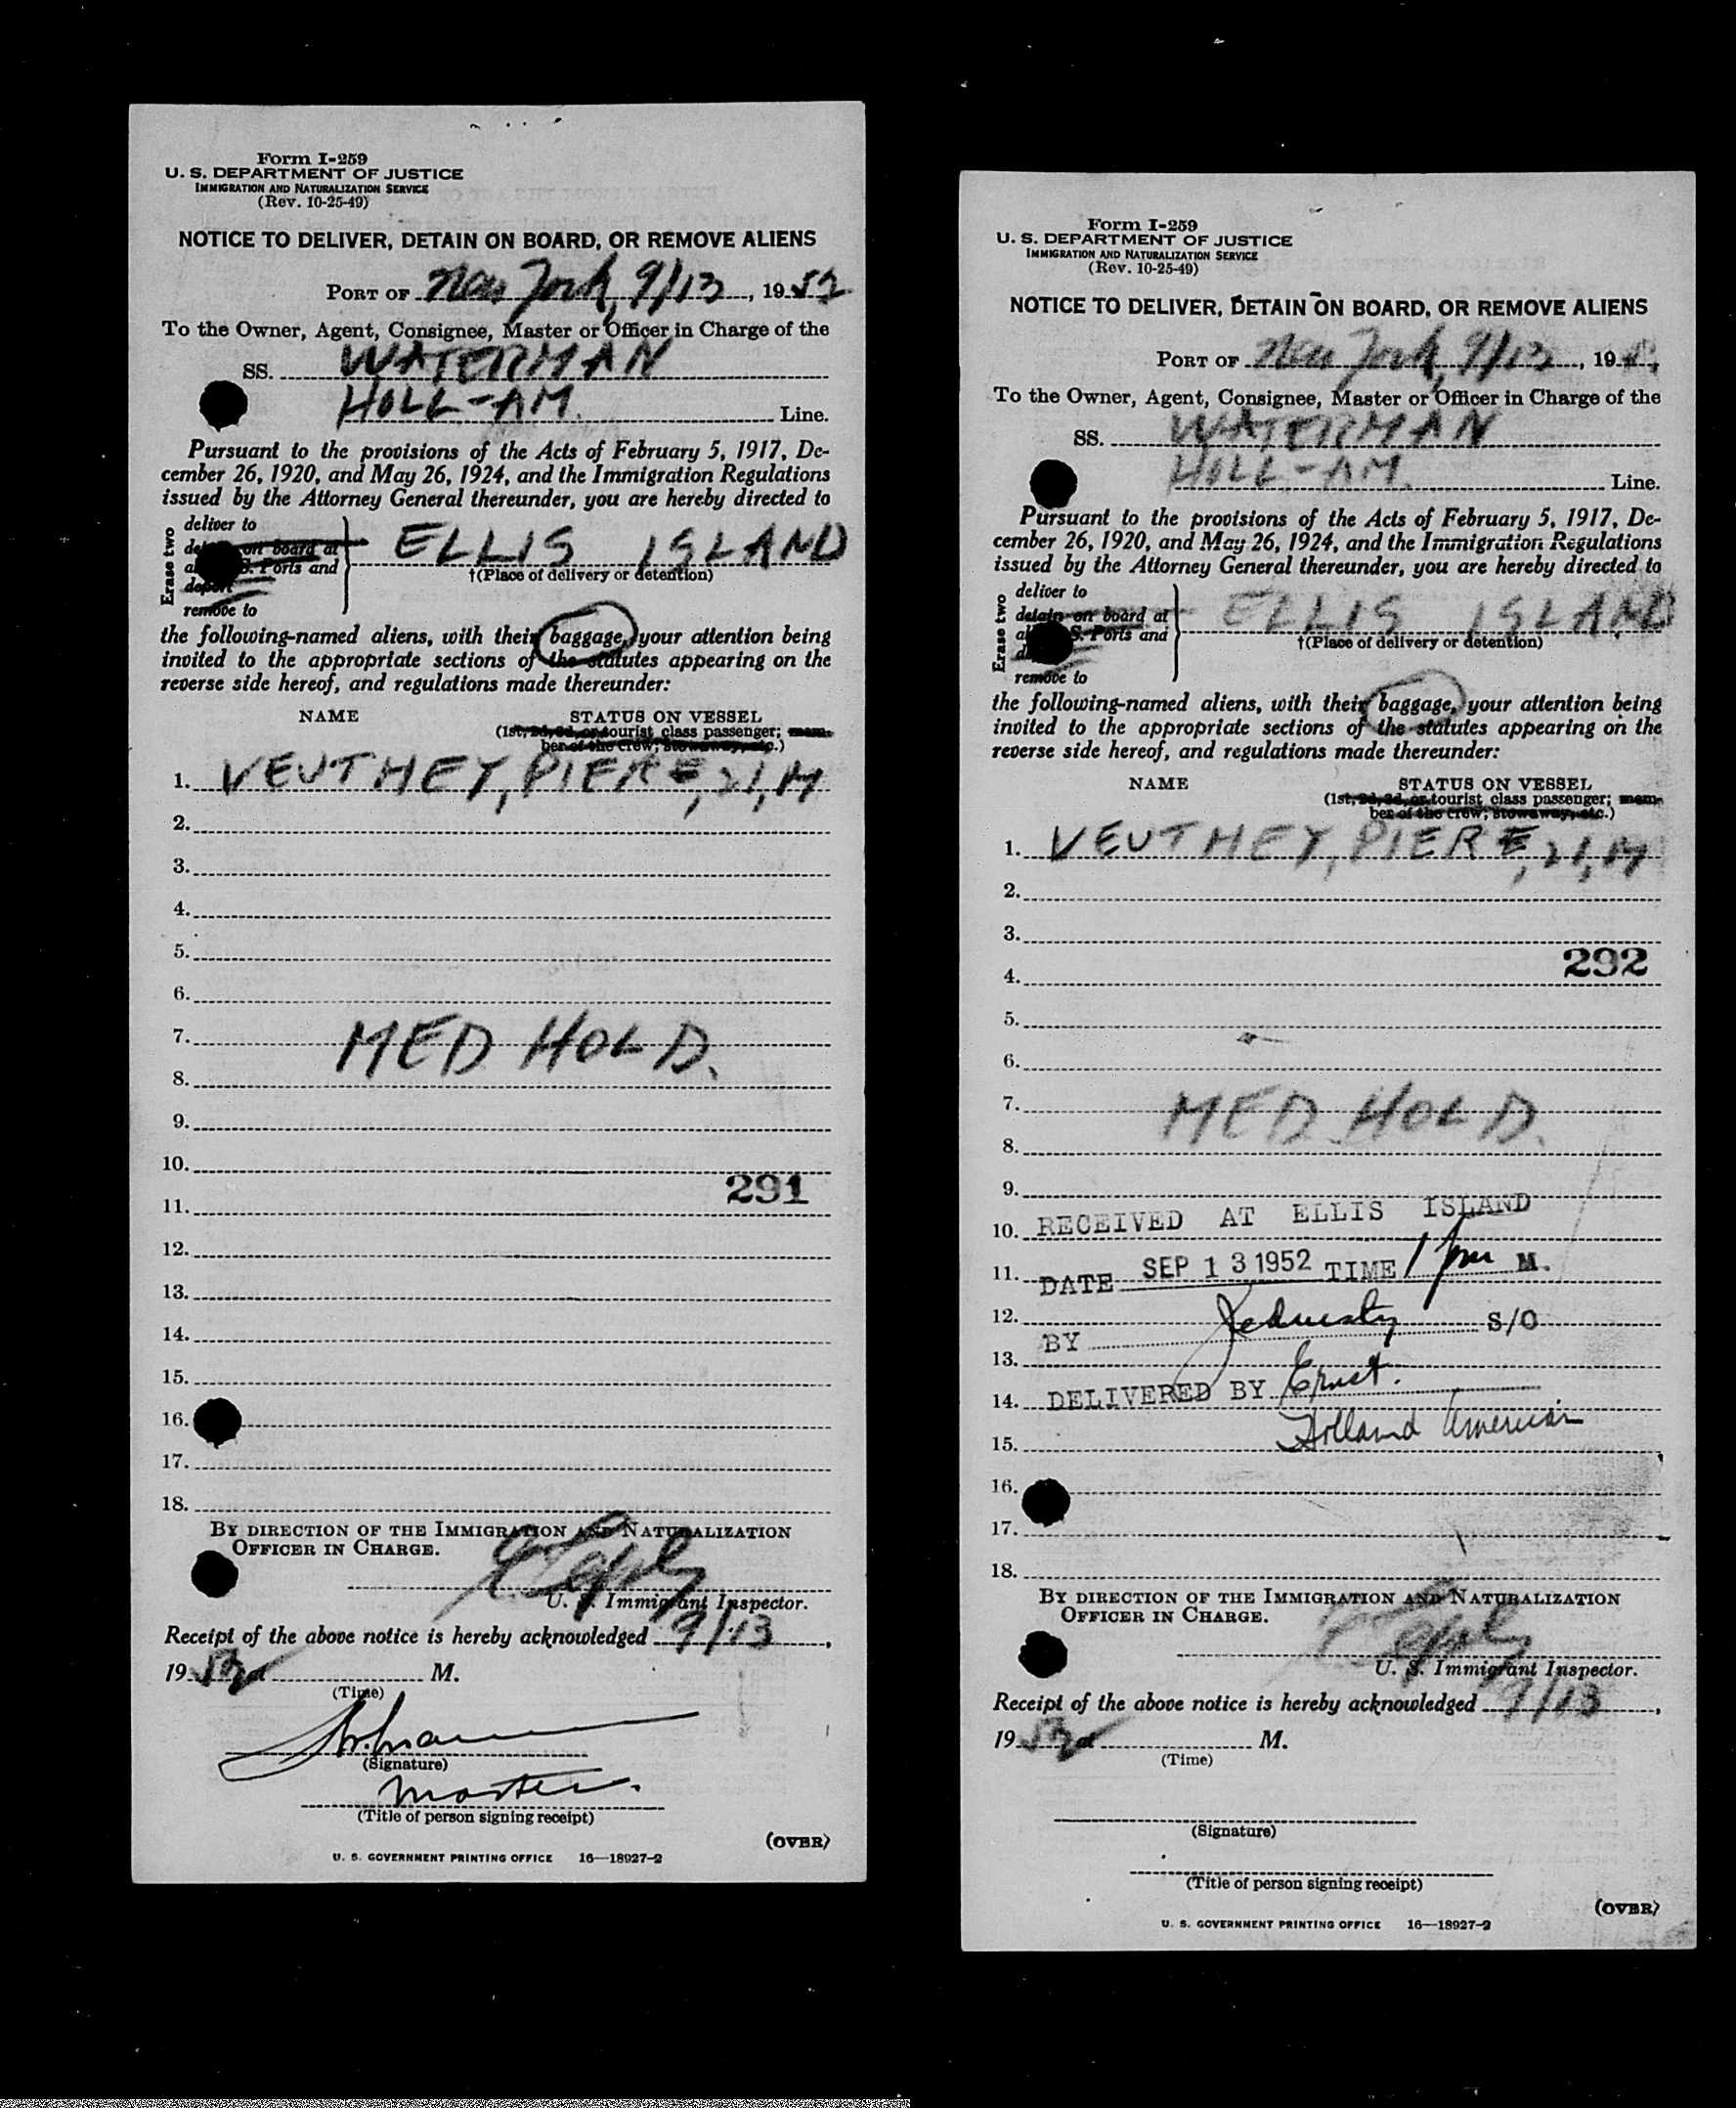 Form I-259
U. S. DEPARTMENT OF JUSTICE
IMMIGRATION AND NATURALIZATION SERVICE
(Rev. 10-25-49)
NOTICE TO DELIVER, DETAIN ON BOARD, OR REMOVE ALIENS
PORT OF New York, 9/13, 1952
To the Owner, Agent, Consignee, Master or Officer in Charge of the
SS. WATERMAN
HOLL-AM. Line.
Pursuant to the provisions of the Acts of February 5, 1917, De-
cember 26, 1920, and May 26, 1924, and the Immigration Regulations
issued by the Attorney General thereunder, you are hereby directed to
Erase two
deliver to
on board at
S. Ports and
deport
remove to
ELLIS ISLAND
†(Place of delivery or detention)
the following-named aliens, with their baggage, your attention being
invited to the appropriate sections of the statutes appearing on the
reverse side hereof, and regulations made thereunder:
NAME STATUS ON VESSEL
(1st, 2d, 3d, or tourist class passenger; mem-
ber of the crew; stowaway, etc.)
1. VEUTHEY, PIERE, 21, M
2.
3.
4.
5.
6.
7. MED HOLD.
8.
9.
10.
291
11.
12.
13.
14.
15.
16.
17.
18.
BY DIRECTION OF THE IMMIGRATION AND NATURALIZATION
OFFICER IN CHARGE.
U. S. Immigrant Inspector.
Receipt of the above notice is hereby acknowledged 9/13,
1952 at M.
(Time)
(Signature)
Master.
(Title of person signing receipt)
(OVER)
U. S. GOVERNMENT PRINTING OFFICE 16—18927-2
Form I-259
U. S. DEPARTMENT OF JUSTICE
IMMIGRATION AND NATURALIZATION SERVICE
(Rev. 10-25-49)
NOTICE TO DELIVER, DETAIN ON BOARD, OR REMOVE ALIENS
PORT OF New York, 9/13, 19
To the Owner, Agent, Consignee, Master or Officer in Charge of the
SS. WATERMAN
HOLL-AM. Line.
Pursuant to the provisions of the Acts of February 5, 1917, De-
cember 26, 1920, and May 26, 1924, and the Immigration Regulations
issued by the Attorney General thereunder, you are hereby directed to
Erase two
deliver to
detain on board at
S. Ports and
remove to
ELLIS ISLAND
†(Place of delivery or detention)
the following-named aliens, with their baggage, your attention being
invited to the appropriate sections of the statutes appearing on the
reverse side hereof, and regulations made thereunder:
NAME STATUS ON VESSEL
(1st, 2d, 3d, or tourist class passenger; mem-
ber of the crew; stowaway, etc.)
1. VEUTHEY, PIERE, 21, M
2.
3.
292
4.
5.
6.
7. MED HOLD.
8.
9.
10. RECEIVED AT ELLIS ISLAND
11. DATE SEP 13 1952 TIME 1 pm M.
12.
BY S/O
13.
14. DELIVERED BY Ernst.
Holland American
15.
16.
17.
18.
BY DIRECTION OF THE IMMIGRATION AND NATURALIZATION
OFFICER IN CHARGE.
U. S. Immigrant Inspector.
Receipt of the above notice is hereby acknowledged 9/13,
1952 at M.
(Time)
(Signature)
(Title of person signing receipt)
(OVER)
U. S. GOVERNMENT PRINTING OFFICE 16—18927-2